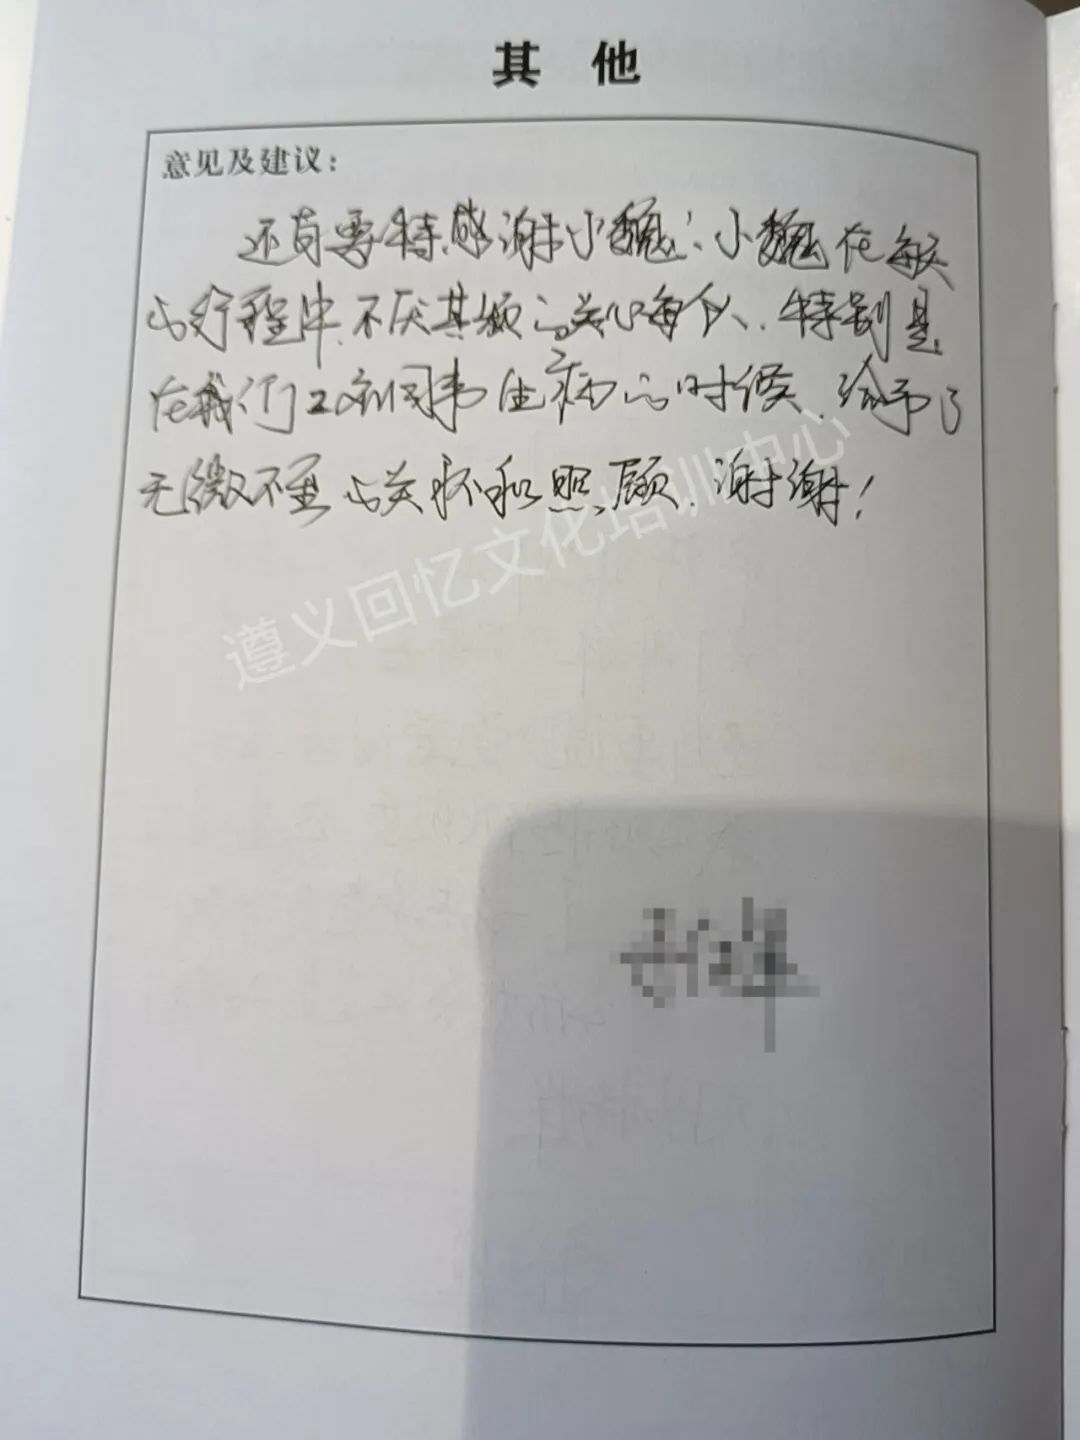 其 他
意见及建议：
还有要特感谢小魏：小魏在每天
的行程中.不厌其烦的关心每个人.特别是
在我们工会同事生病的时候.给予了
无微不至的关怀和照顾.谢谢!
遵义回忆文化培训中心